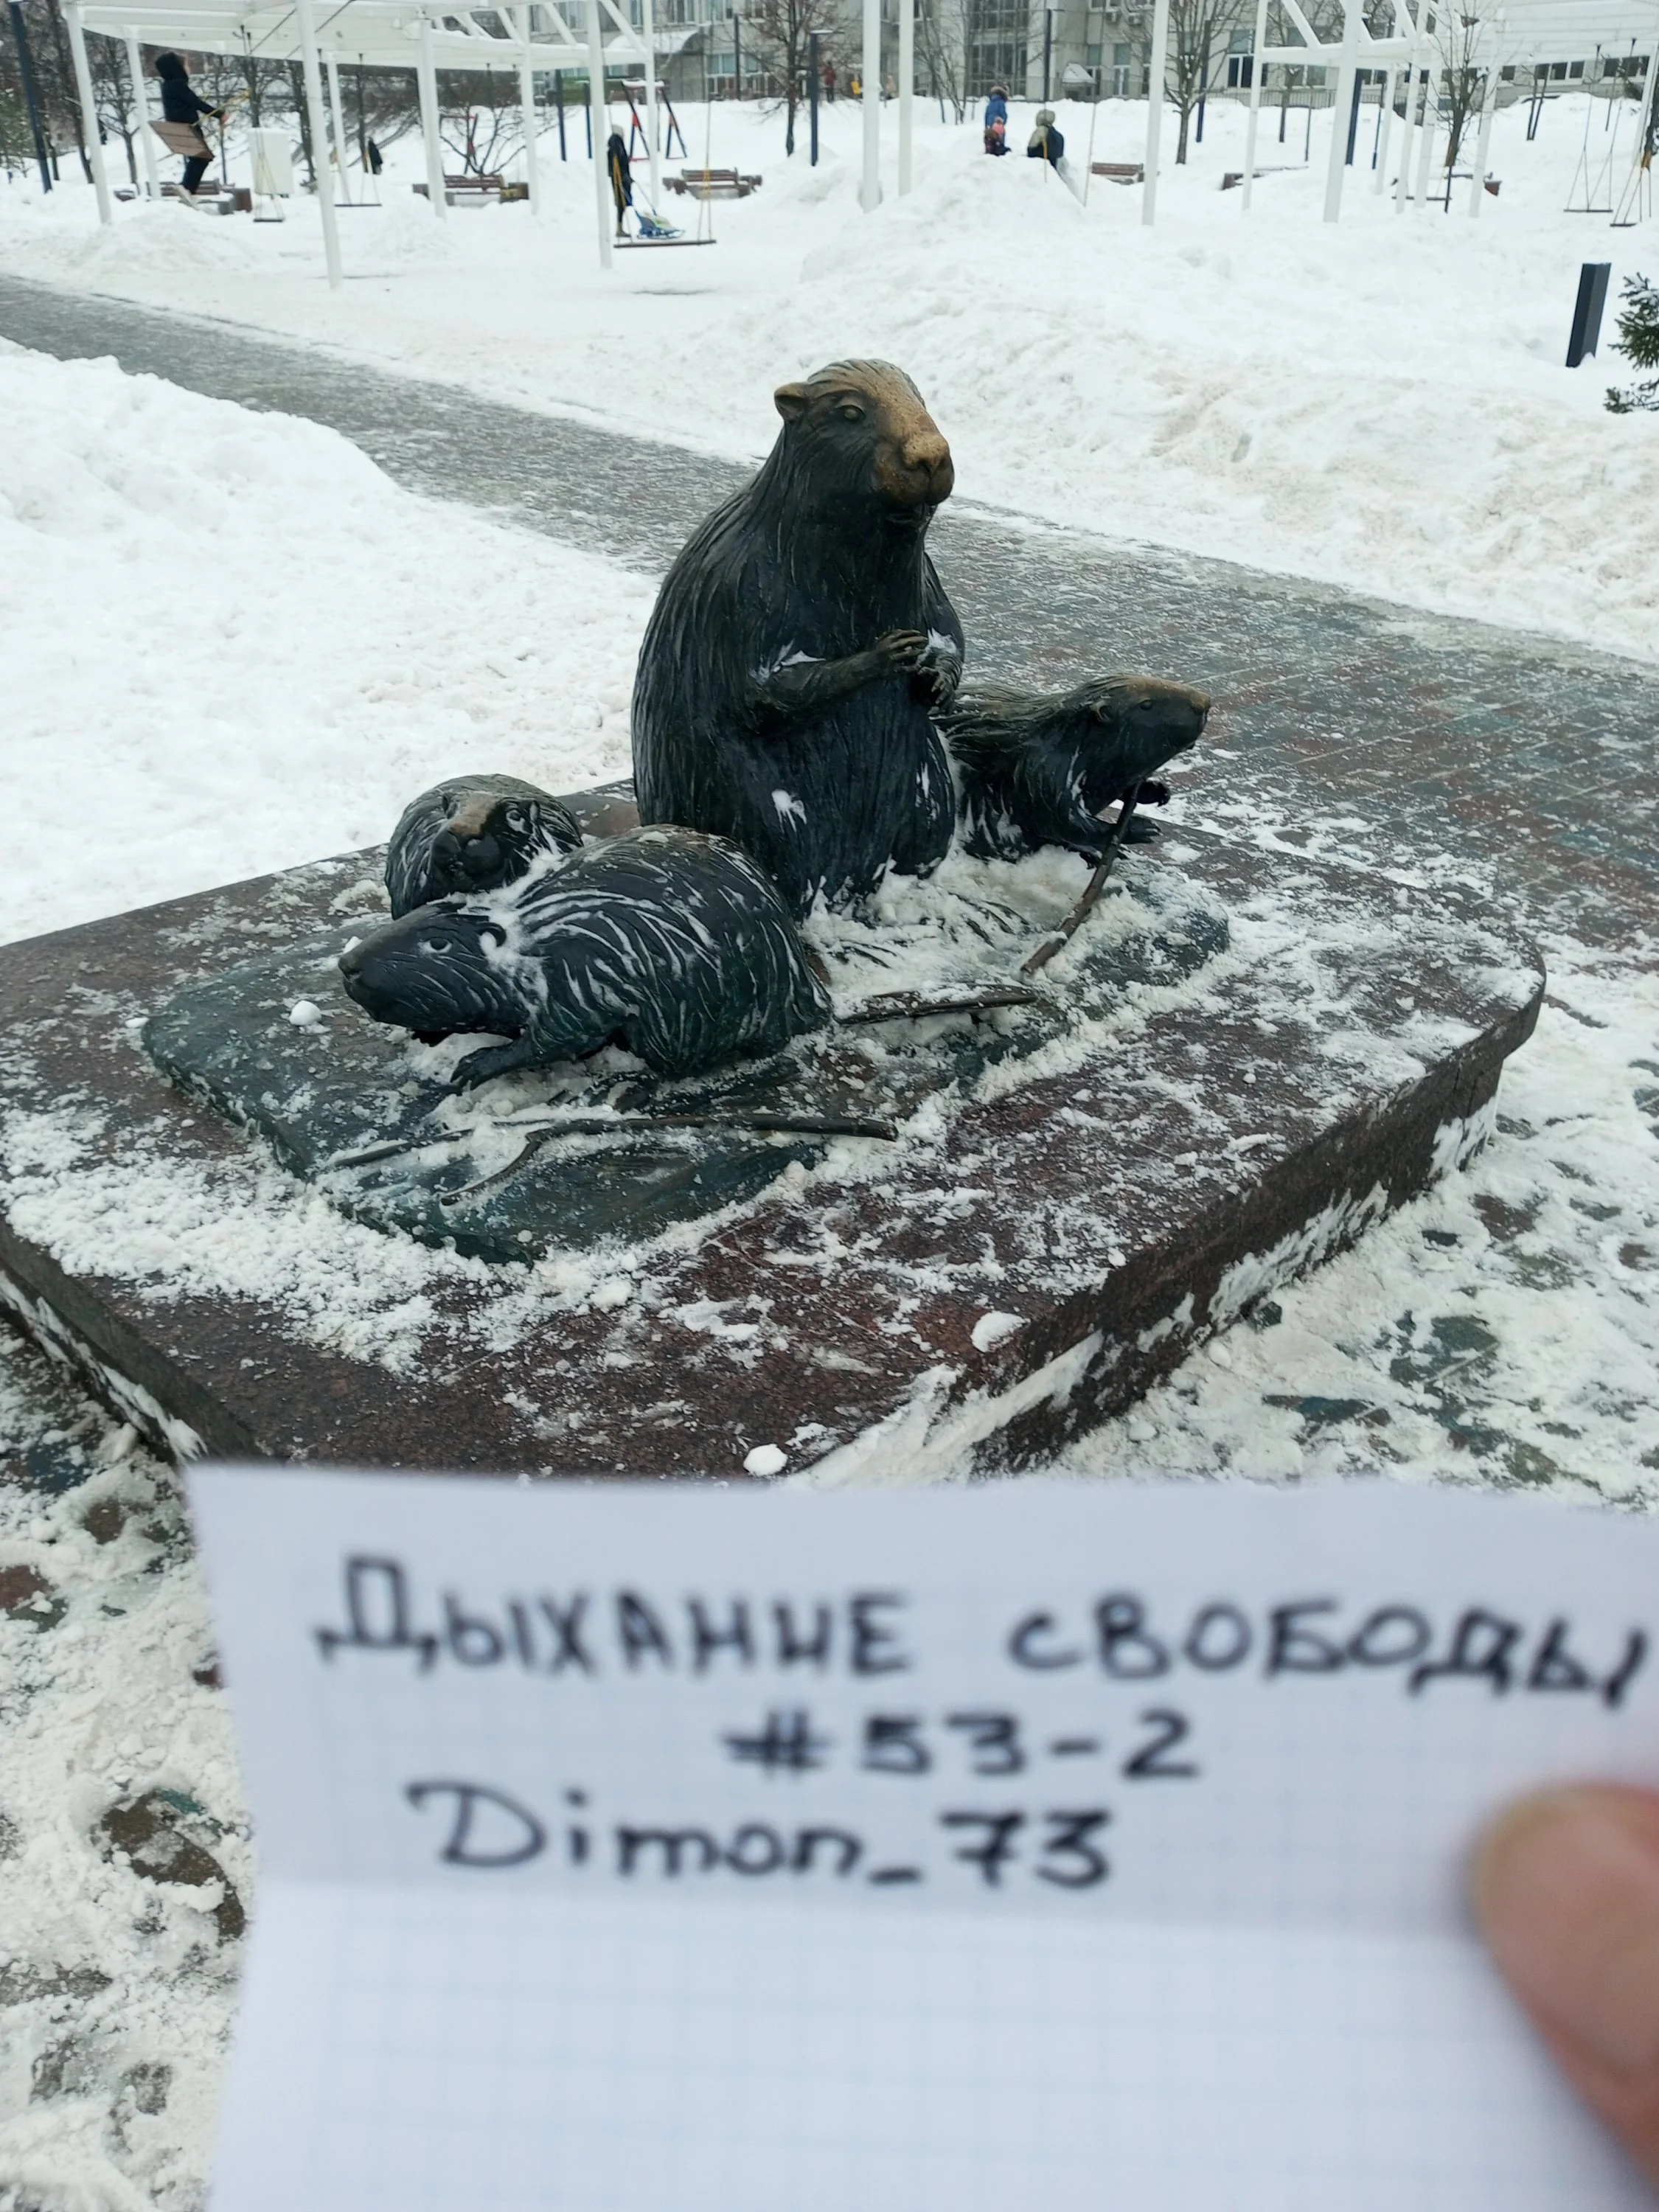 Дыхание свободы
#53-2
Dimon_73